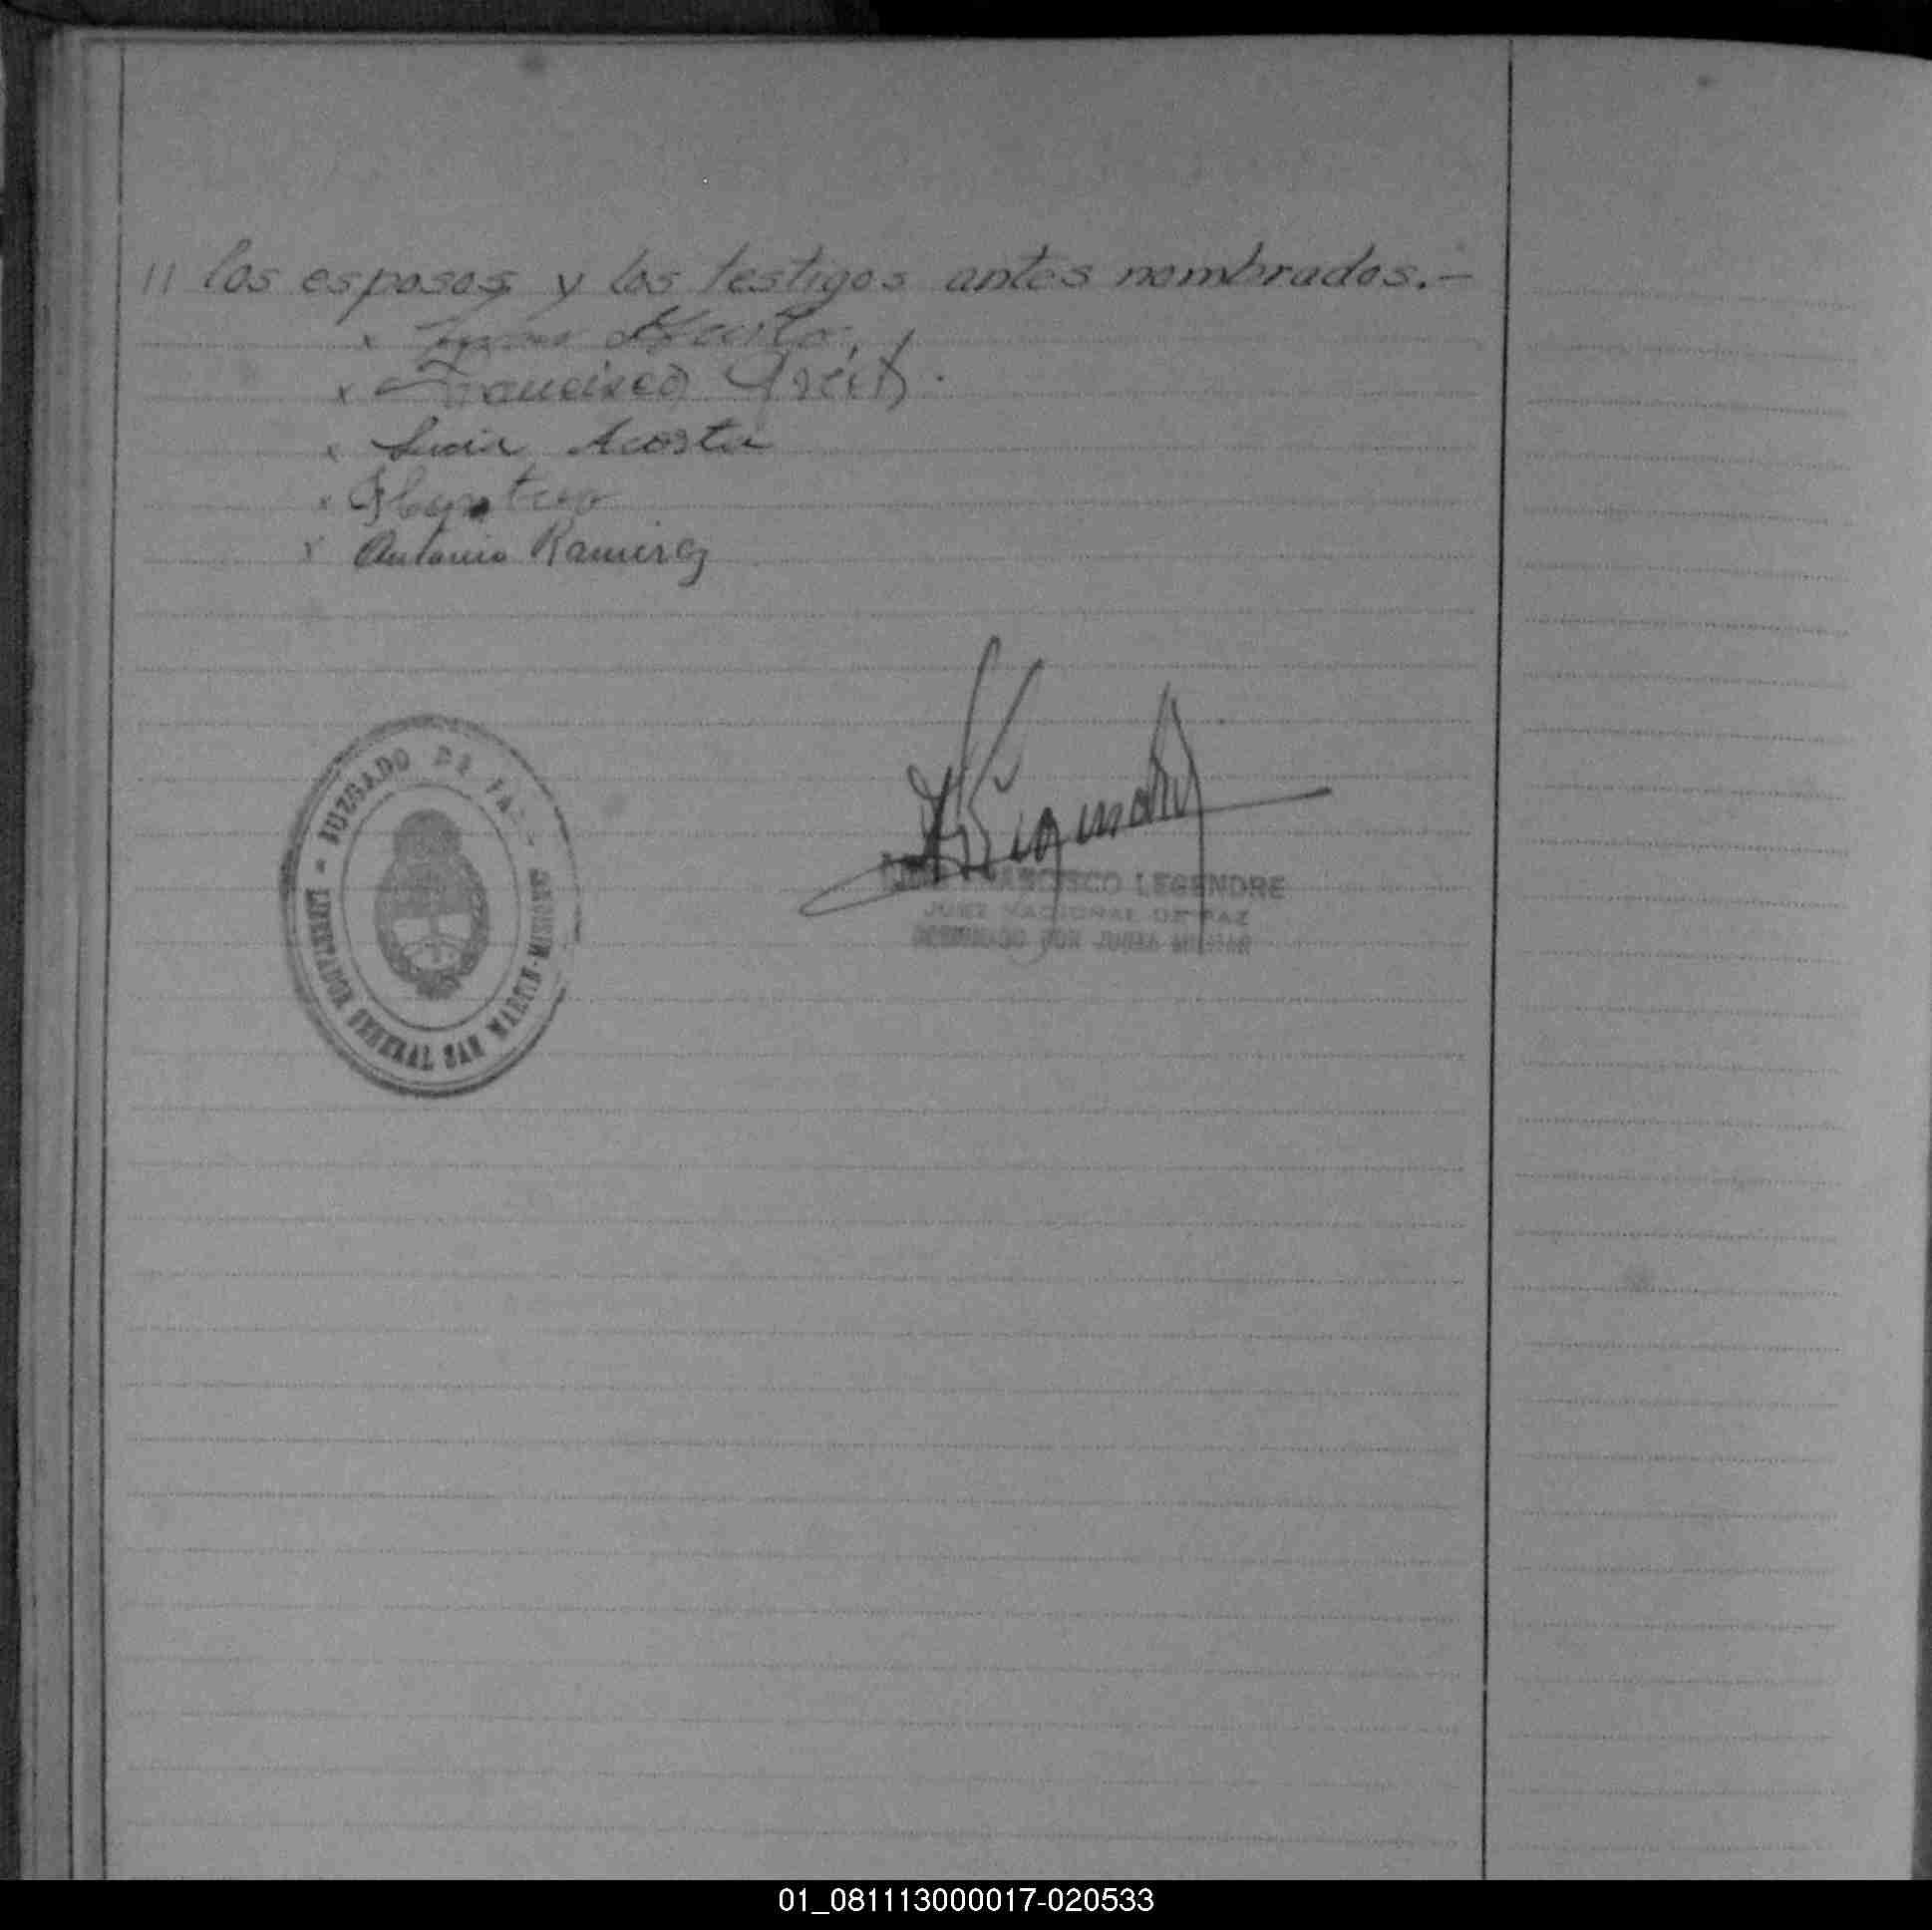 11 los esposos y los testigos antes nombrados.-
x Acosta
x Francisco
x Lucia Acosta
x
x Antonio Ramirez
JUZGADO DE PAZ - LIBERTADOR GENERAL SAN MARTIN - MISIONES
FRANCISCO LEGENDRE
JUEZ NACIONAL DE PAZ
POR JUNTA MILITAR
01_081113000017-020533